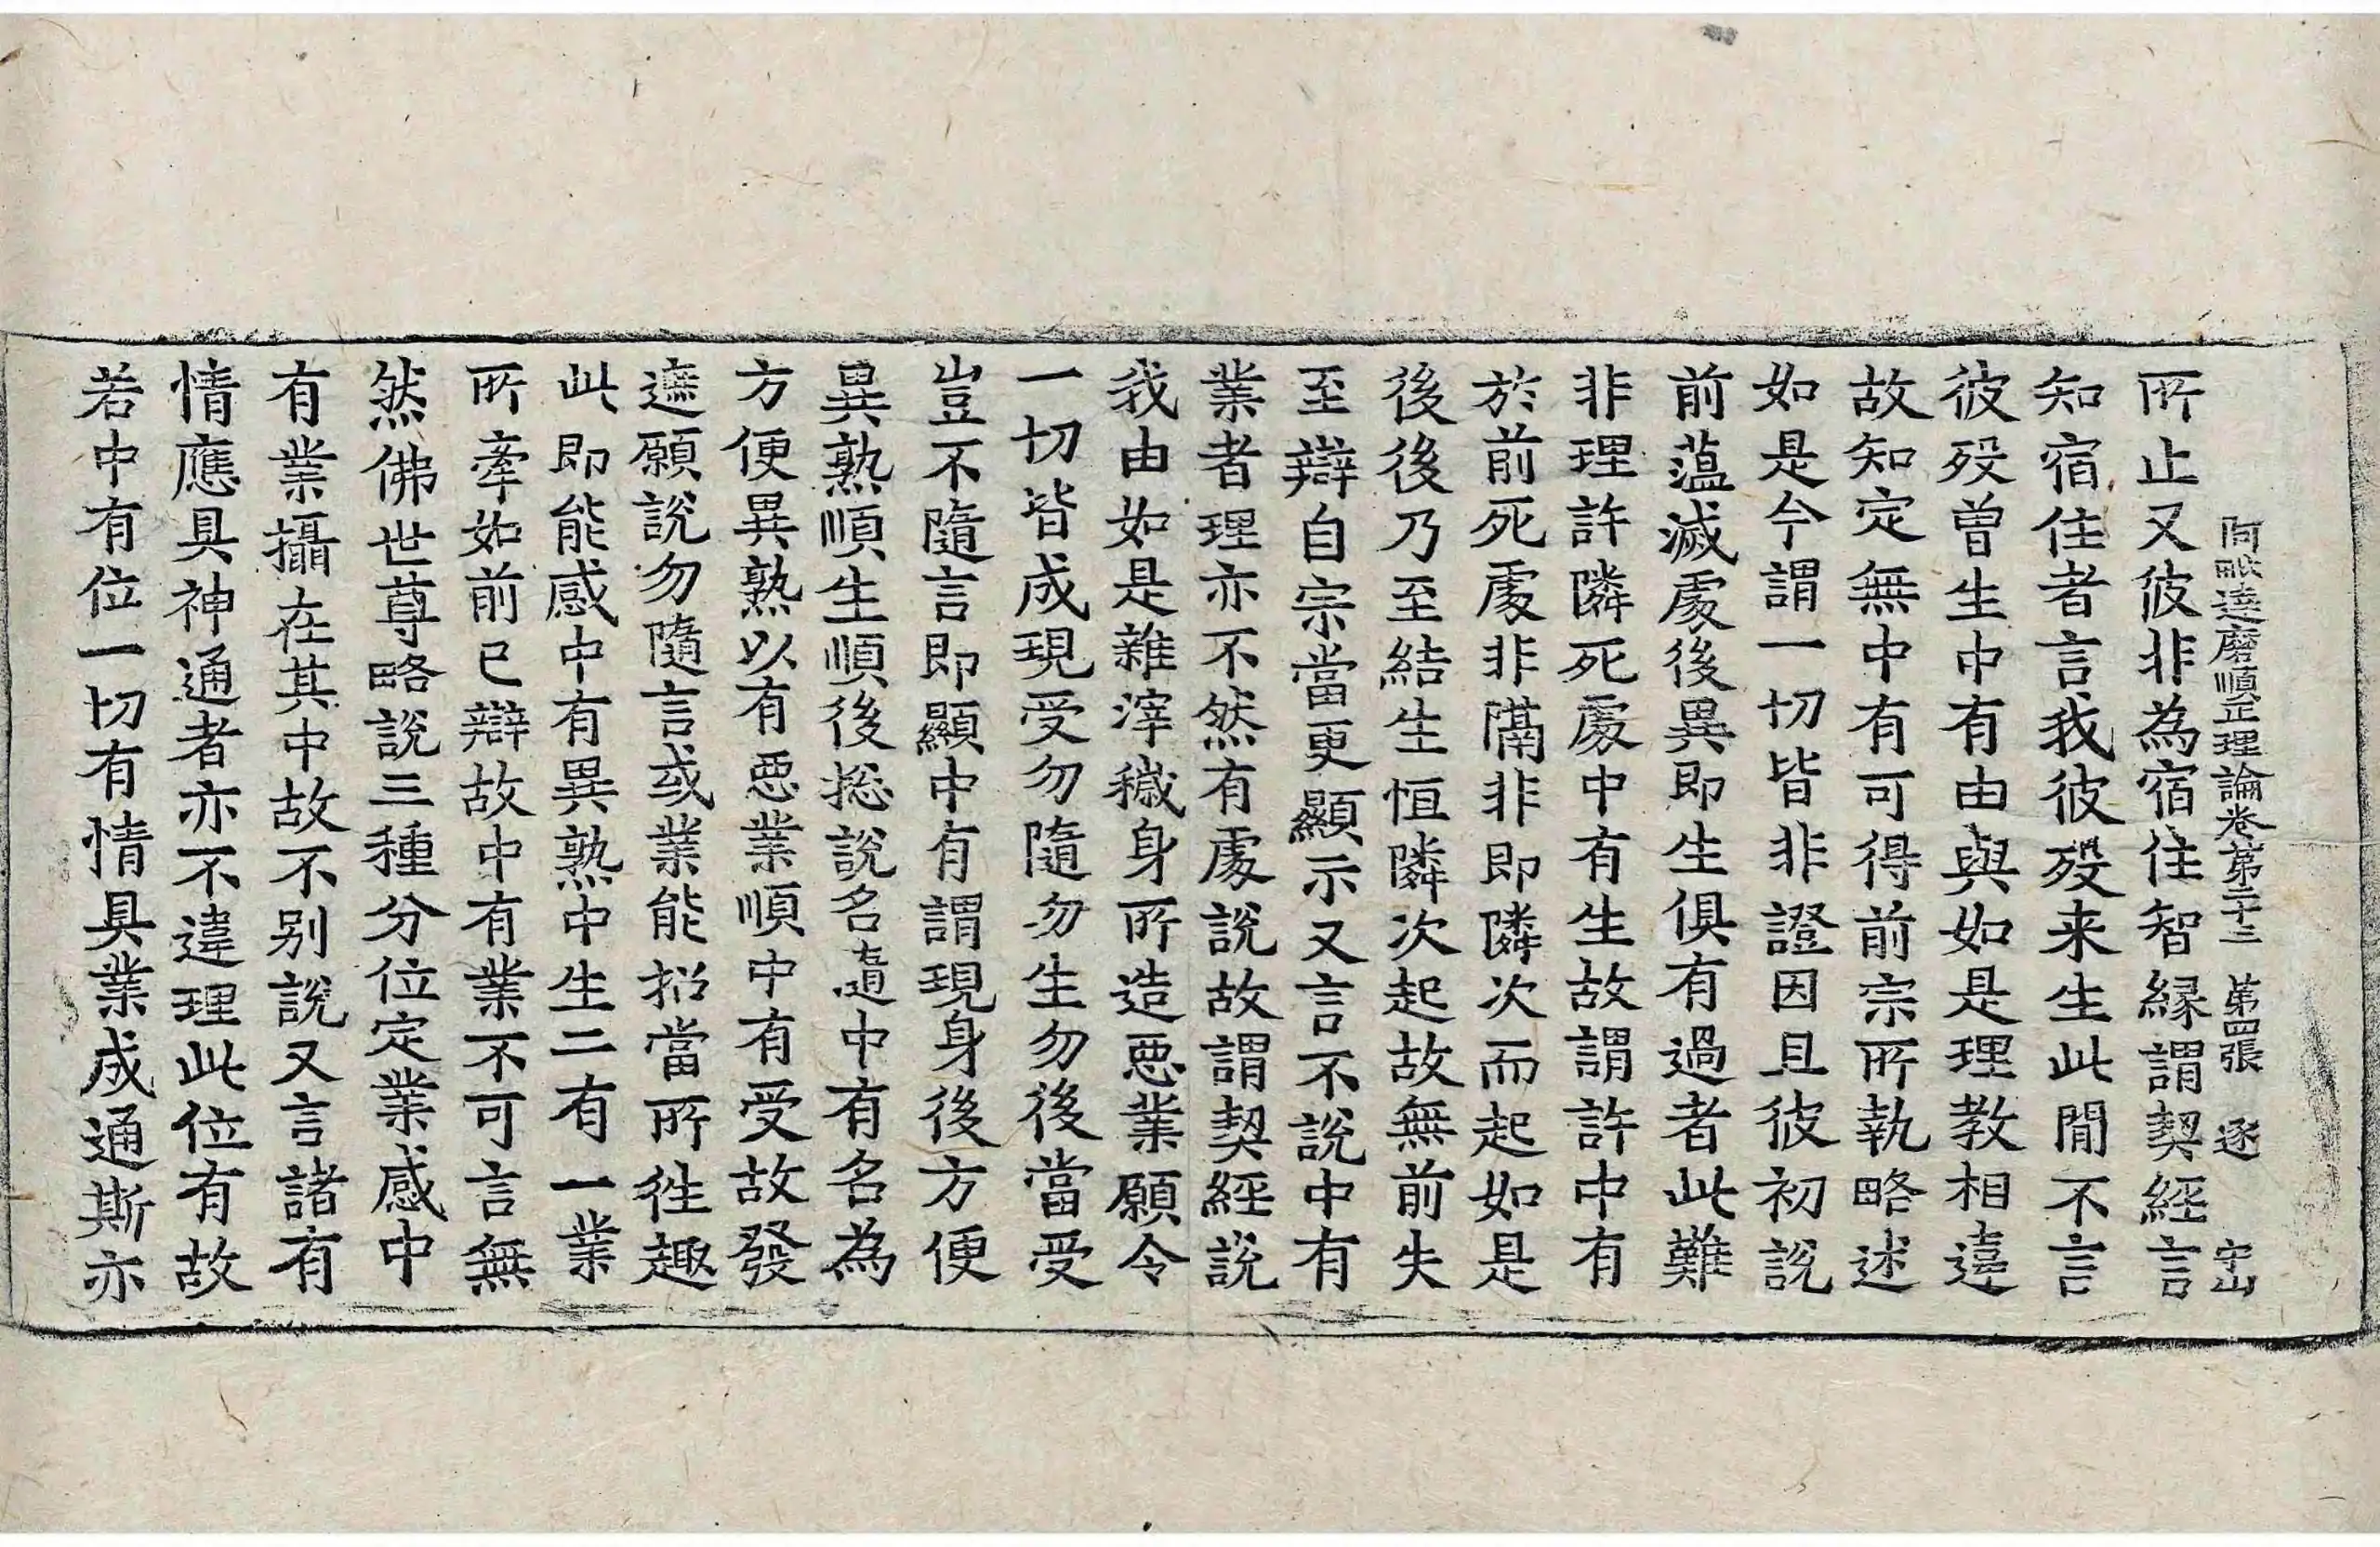 阿毗達磨順正理論卷第二十三　第四張　逐　守山
所止又彼非為宿住智緣謂契經言
知宿住者言我彼歿来生此閒不言
彼歿曾生中有由與如是理教相違
故知定無中有可得前宗所執略述
如是今謂一切皆非證因且彼初說
前薀滅處後異即生俱有過者此難
非理許隣死處中有生故謂許中有
於前死處非隔非即隣次而起如是
後後乃至結生恒隣次起故無前失
至辯自宗當更顯示又言不說中有
業者理亦不然有處說故謂契經說
我由如是雜滓穢身所造惡業願令
一切皆成現受勿隨勿生勿後當受
豈不隨言即顯中有謂現身後方便
異熟順生順後捴說名隨中有名為
方便異熟以有惡業順中有受故發
遮願說勿隨言或業能招當所往趣
此即能感中有異熟中生二有一業
所牽如前已辯故中有業不可言無
然佛世尊略說三種分位定業感中
有業攝在其中故不别說又言諸有
情應具神通者亦不違理此位有故
若中有位一切有情具業成通斯亦